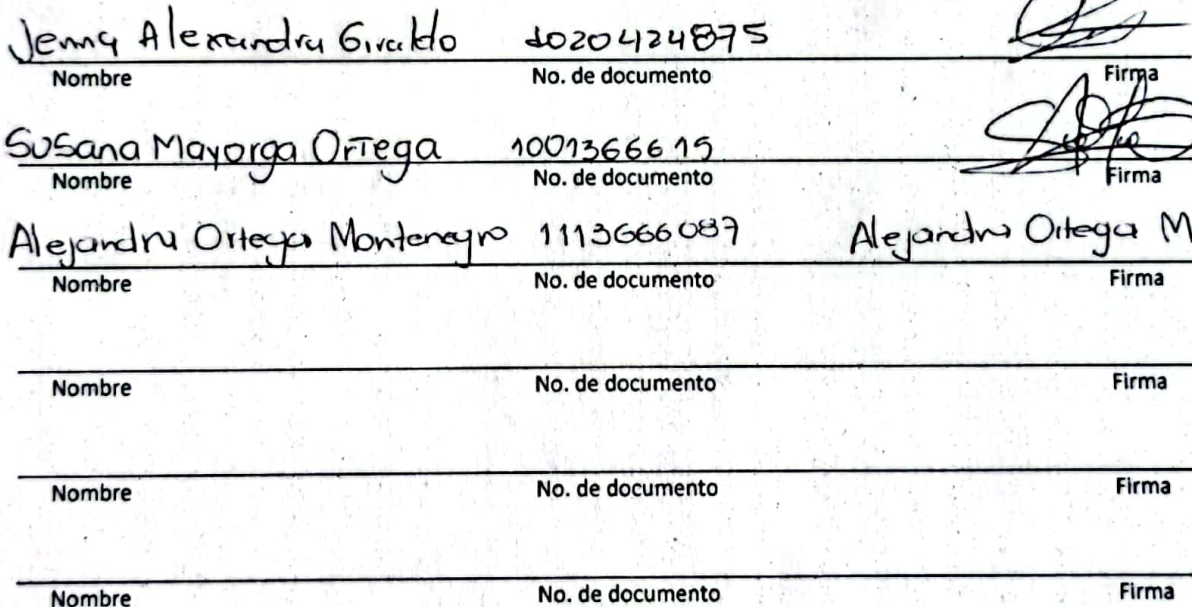 Jenny Alexandra Giraldo 1020424875
Nombre No. de documento Firma
Susana Mayorga Ortega 1001366615
Nombre No. de documento Firma
Alejandra Ortega Montenegro 1113666087 Alejandra Ortega M
Nombre No. de documento Firma
Nombre No. de documento Firma
Nombre No. de documento Firma
Nombre No. de documento Firma